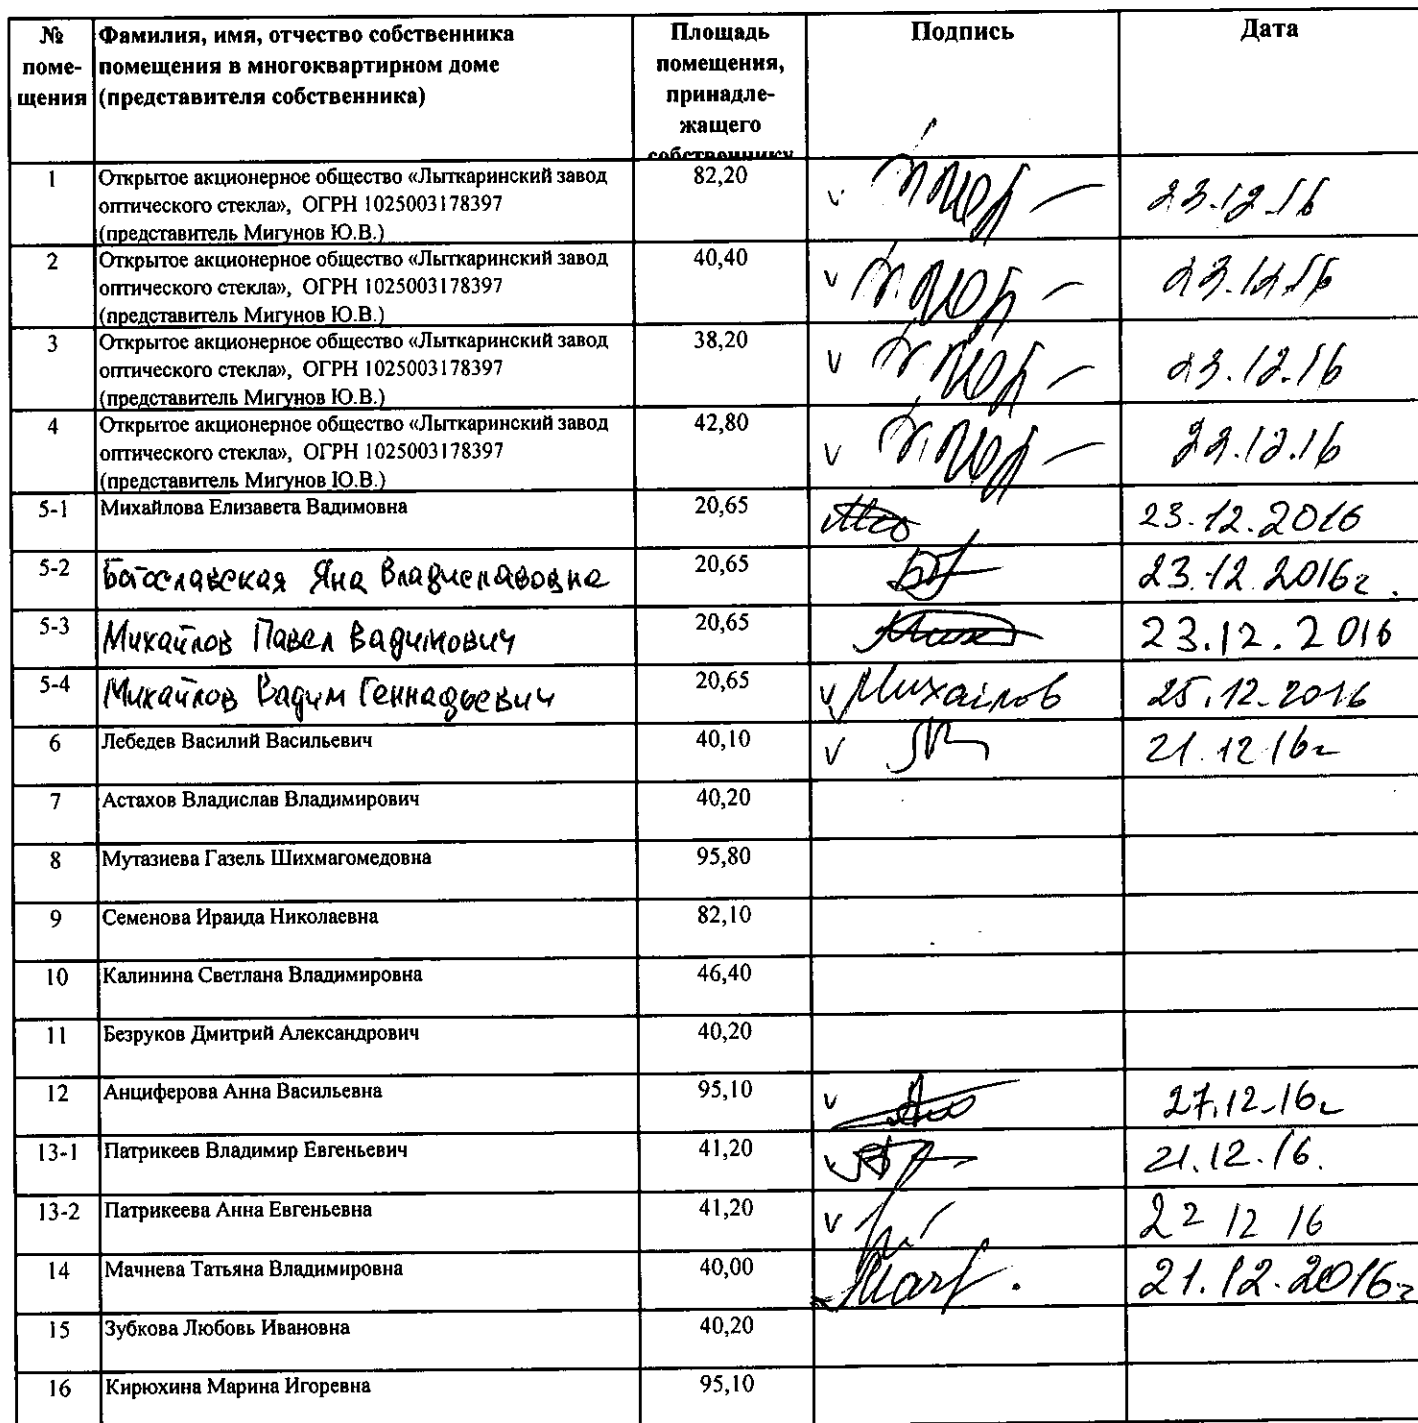 № поме- щения
Фамилия, имя, отчество собственника помещения в многоквартирном доме (представителя собственника)
Площадь помещения, принадле- жащего собственнику
Подпись
Дата
1
Открытое акционерное общество «Лыткаринский завод
оптического стекла», ОГРН 1025003178397
(представитель Мигунов Ю.В.)
82,20
v
23.12.16
2
Открытое акционерное общество «Лыткаринский завод
оптического стекла», ОГРН 1025003178397
(представитель Мигунов Ю.В.)
40,40
v
23.12.16
3
Открытое акционерное общество «Лыткаринский завод
оптического стекла», ОГРН 1025003178397
(представитель Мигунов Ю.В.)
38,20
v
23.12.16
4
Открытое акционерное общество «Лыткаринский завод
оптического стекла», ОГРН 1025003178397
(представитель Мигунов Ю.В.)
42,80
v
23.12.16
5-1 Михайлова Елизавета Вадимовна 20,65 23.12.2016
5-2 Богославская Яна Владиславовна 20,65 23.12.2016г.
5-3 Михайлов Павел Вадимович 20,65 23.12.2016
5-4 Михайлов Вадим Геннадьевич 20,65 v Михайлов 25.12.2016
6 Лебедев Василий Васильевич 40,10 v 21.12 16г
7 Астахов Владислав Владимирович 40,20
8 Мутазиева Газель Шихмагомедовна 95,80
9 Семенова Ираида Николаевна 82,10
10 Калинина Светлана Владимировна 46,40
11 Безруков Дмитрий Александрович 40,20
12 Анциферова Анна Васильевна 95,10 v 27.12.16г
13-1 Патрикеев Владимир Евгеньевич 41,20 v 21.12.16.
13-2 Патрикеева Анна Евгеньевна 41,20 v 22 12 16
14 Мачнева Татьяна Владимировна 40,00 21.12.2016г
15 Зубкова Любовь Ивановна 40,20
16 Кирюхина Марина Игоревна 95,10